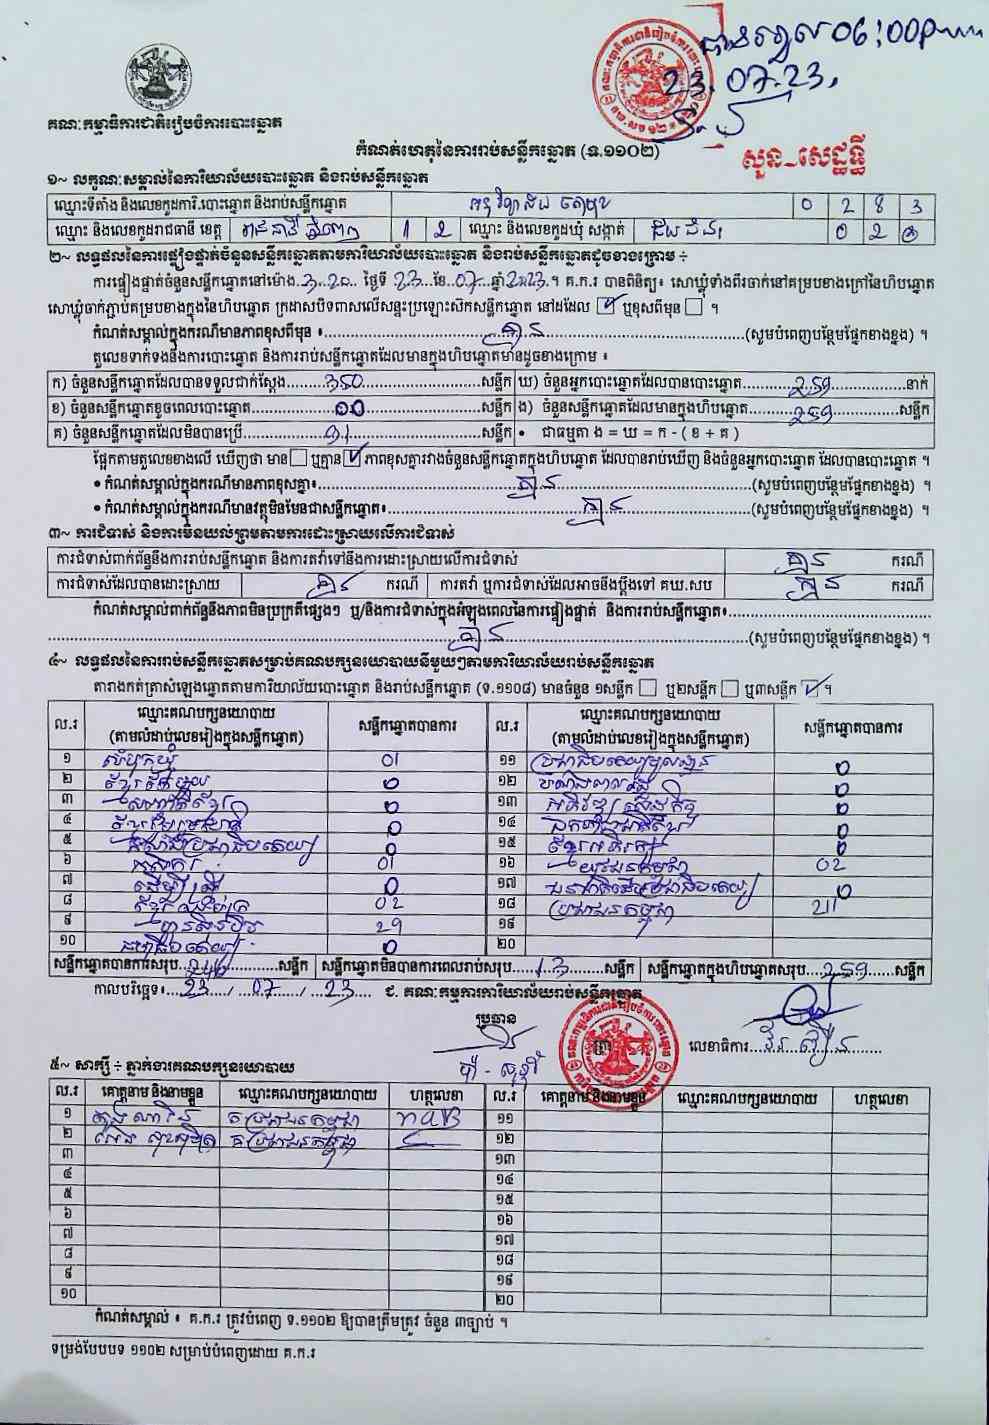 ជាងទទួល 06:00pm
23.07.23
គណៈកម្មាធិការជាតិរៀបចំការបោះឆ្នោត
កំណត់ហេតុនៃការរាប់សន្លឹកឆ្នោត (ទ.១១០២)
សួន សេដ្ឋទ្ធី
១~ លក្ខណៈសម្គាល់នៃការិយាល័យបោះឆ្នោត និងរាប់សន្លឹកឆ្នោត
ឈ្មោះទីតាំង និងលេខកូដការិ.បោះឆ្នោត និងរាប់សន្លឹកឆ្នោត 0 2 8 3
ឈ្មោះ និងលេខកូដរាជធានី ខេត្ត រាជធានីភ្នំពេញ 1 2 ឈ្មោះ និងលេខកូដឃុំ សង្កាត់ 0 2
២~ លទ្ធផលនៃការផ្ទៀងផ្ទាត់ចំនួនសន្លឹកឆ្នោតតាមការិយាល័យបោះឆ្នោត និងរាប់សន្លឹកឆ្នោតដូចខាងក្រោម ÷
ការផ្ទៀងផ្ទាត់ចំនួនសន្លឹកឆ្នោតនៅម៉ោង 3.20 ថ្ងៃទី 23 ខែ 07 ឆ្នាំ 2023 ។ គ.ក.រ បានពិនិត្យ៖ សោឃ្លុំទាំងពីរចាក់នៅគម្របខាងក្រៅនៃហិបឆ្នោត
សោឃ្លុំចាក់ភ្ជាប់គម្របខាងក្នុងនៃហិបឆ្នោត ក្រដាសបិទពាសលើសន្ទះប្រឡោះស៊កសន្លឹកឆ្នោត នៅដដែល ☑ ឬខុសពីមុន ☐ ។
កំណត់សម្គាល់ក្នុងករណីមានភាពខុសពីមុន ៖ គ្មាន (សូមបំពេញបន្ថែមផ្នែកខាងខ្នង) ។
តួលេខទាក់ទងនឹងការបោះឆ្នោត និងការរាប់សន្លឹកឆ្នោតដែលមានក្នុងហិបឆ្នោតមានដូចខាងក្រោម ៖
ក) ចំនួនសន្លឹកឆ្នោតដែលបានទទួលជាក់ស្តែង 350 សន្លឹក ឃ) ចំនួនអ្នកបោះឆ្នោតដែលបានបោះឆ្នោត 259 នាក់
ខ) ចំនួនសន្លឹកឆ្នោតខូចពេលបោះឆ្នោត 00 សន្លឹក ង) ចំនួនសន្លឹកឆ្នោតដែលមានក្នុងហិបឆ្នោត 259 សន្លឹក
គ) ចំនួនសន្លឹកឆ្នោតដែលមិនបានប្រើ 91 សន្លឹក • ជាធម្មតា ង = ឃ = ក - ( ខ + គ )
ផ្អែកតាមតួលេខខាងលើ ឃើញថា មាន ☐ ឬគ្មាន ☑ ភាពខុសគ្នារវាងចំនួនសន្លឹកឆ្នោតក្នុងហិបឆ្នោត ដែលបានរាប់ឃើញ និងចំនួនអ្នកបោះឆ្នោត ដែលបានបោះឆ្នោត ។
• កំណត់សម្គាល់ក្នុងករណីមានភាពខុសគ្នា៖ គ្មាន (សូមបំពេញបន្ថែមផ្នែកខាងខ្នង) ។
• កំណត់សម្គាល់ក្នុងករណីមានវត្ថុមិនមែនជាសន្លឹកឆ្នោត៖ គ្មាន (សូមបំពេញបន្ថែមផ្នែកខាងខ្នង) ។
៣~ ការជំទាស់ និងការមិនយល់ព្រមតាមការដោះស្រាយលើការជំទាស់
ការជំទាស់ពាក់ព័ន្ធនឹងការរាប់សន្លឹកឆ្នោត និងការតវ៉ាទៅនឹងការដោះស្រាយលើការជំទាស់ គ្មាន ករណី
ការជំទាស់ដែលបានដោះស្រាយ គ្មាន ករណី ការតវ៉ា ឬការជំទាស់ដែលអាចនឹងប្តឹងទៅ គឃ.សប គ្មាន ករណី
កំណត់សម្គាល់ពាក់ព័ន្ធនឹងភាពមិនប្រក្រតីផ្សេងៗ ឬ/និងការជំទាស់ក្នុងអំឡុងពេលនៃការផ្ទៀងផ្ទាត់ និងការរាប់សន្លឹកឆ្នោត៖
គ្មាន (សូមបំពេញបន្ថែមផ្នែកខាងខ្នង) ។
៤~ លទ្ធផលនៃការរាប់សន្លឹកឆ្នោតសម្រាប់គណបក្សនយោបាយនីមួយៗតាមការិយាល័យរាប់សន្លឹកឆ្នោត
តារាងកត់ត្រាសំឡេងឆ្នោតតាមការិយាល័យបោះឆ្នោត និងរាប់សន្លឹកឆ្នោត (ទ.១១០៨) មានចំនួន ១សន្លឹក ☐ ឬ២សន្លឹក ☐ ឬ៣សន្លឹក ☑ ។
ល.រ ឈ្មោះគណបក្សនយោបាយ (តាមលំដាប់លេខរៀងក្នុងសន្លឹកឆ្នោត) សន្លឹកឆ្នោតបានការ ល.រ ឈ្មោះគណបក្សនយោបាយ (តាមលំដាប់លេខរៀងក្នុងសន្លឹកឆ្នោត) សន្លឹកឆ្នោតបានការ
១ សំបុកឃ្មុំ 01 ១១ ប្រជាធិបតេយ្យមូលដ្ឋាន 0
២ ខ្មែរតែមួយ 0 ១២ 0
៣ 0 ១៣ 0
៤ 0 ១៤ 0
៥ កម្លាំងប្រជាធិបតេយ្យ 0 ១៥ ខ្មែរអភិរក្ស 0
៦ កសិករ 01 ១៦ យុវជនកម្ពុជា 02
៧ ដើម្បីស្រី 0 ១៧ 0
៨ 02 ១៨ ប្រជាជនកម្ពុជា 211
៩ ហ្វ៊ុនស៊ិនប៉ិច 29 ១៩
១០ 0 ២០
សន្លឹកឆ្នោតបានការសរុប 246 សន្លឹក សន្លឹកឆ្នោតមិនបានការពេលរាប់សរុប 13 សន្លឹក សន្លឹកឆ្នោតក្នុងហិបឆ្នោតសរុប 259 សន្លឹក
កាលបរិច្ឆេទ៖ 23 / 07 / 23 ជ. គណៈកម្មការការិយាល័យរាប់សន្លឹកឆ្នោត
ប្រធាន
លេខាធិការ
៥~ សាក្សី ÷ ភ្នាក់ងារគណបក្សនយោបាយ
ល.រ គោត្តនាម និងនាមខ្លួន ឈ្មោះគណបក្សនយោបាយ ហត្ថលេខា ល.រ គោត្តនាម និងនាមខ្លួន ឈ្មោះគណបក្សនយោបាយ ហត្ថលេខា
១ គ ប្រជាជនកម្ពុជា ១១
២ គ ប្រជាជនកម្ពុជា ១២
៣ ១៣
៤ ១៤
៥ ១៥
៦ ១៦
៧ ១៧
៨ ១៨
៩ ១៩
១០ ២០
កំណត់សម្គាល់ ៖ គ.ក.រ ត្រូវបំពេញ ទ.១១០២ ឱ្យបានត្រឹមត្រូវ ចំនួន ៣ច្បាប់ ។
ទម្រង់បែបបទ ១១០២ សម្រាប់បំពេញដោយ គ.ក.រ